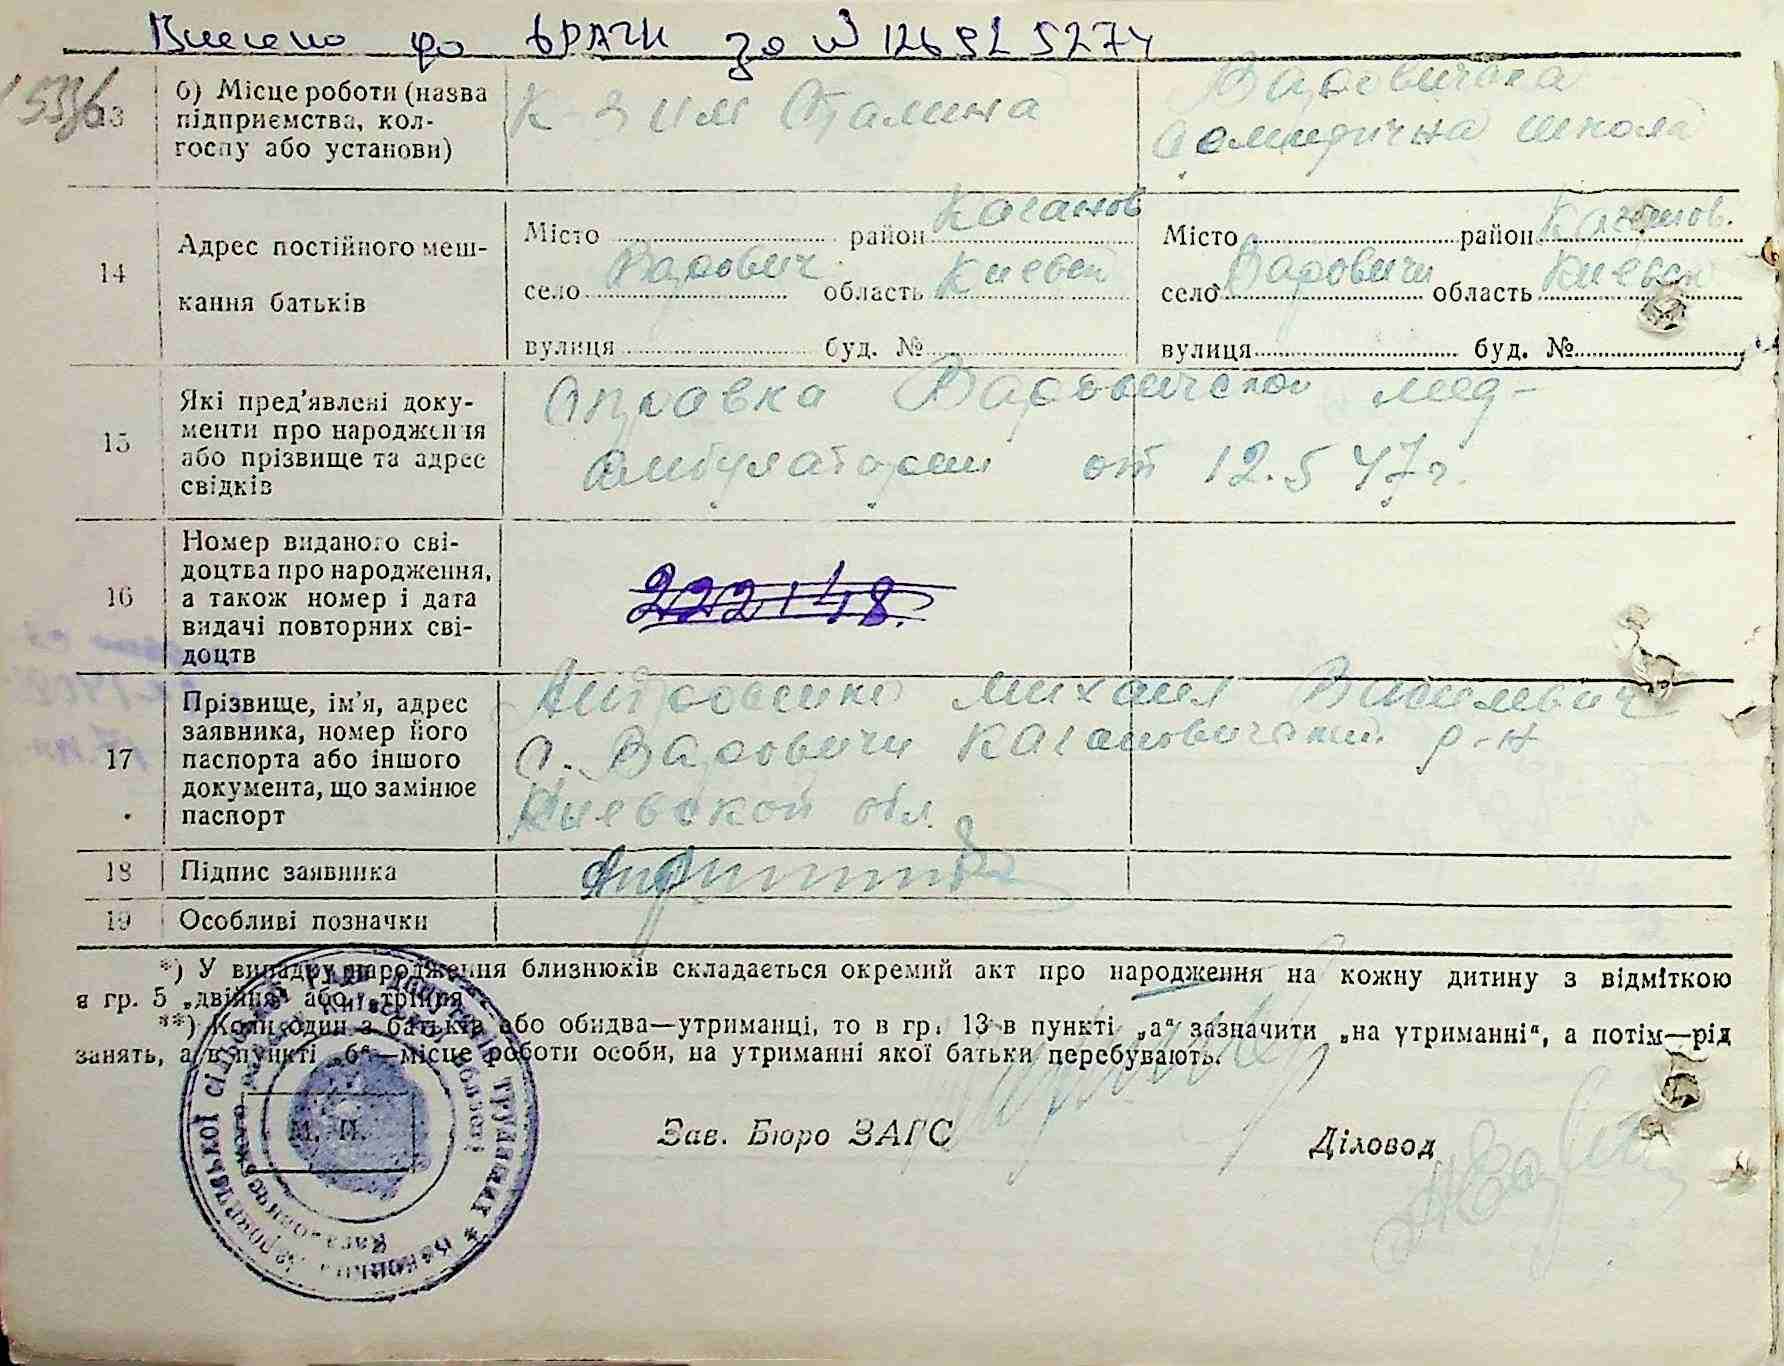 Внесено до ДРАЦС за № 126 52 5274
5336
13
б) Місце роботи (назва
підприємства, кол-
госпу або установи)
к-з им Сталина
Варовичска
семирична школа
14
Адрес постійного меш-
кання батьків
Місто район Каганов
село Варович область Киевск
вулиця буд. №
Місто район Каганов.
село Варовичи область Киевск
вулиця буд. №
15
Які пред'явлені доку-
менти про народження
або прізвище та адрес
свідків
Справка Варовичской мед-
амбулатории от 12.5 47г.
16
Номер виданого сві-
доцтва про народження,
а також номер і дата
видачі повторних сві-
доцтв
222148.
17
Прізвище, ім'я, адрес
заявника, номер його
паспорта або іншого
документа, що замінює
паспорт
Михаил Василевич
с. Варовичи Кагановичский р-н
Киевской обл.
18
Підпис заявника
19
Особливі позначки
*) У випадку народження близнюків складається окремий акт про народження на кожну дитину з відміткою
в гр. 5 „двійня" або „трійня
**) Коли один з батьків або обидва—утриманці, то в гр. 13 в пункті „а" зазначити „на утриманні", а потім—рід
занять, а в пункті „б"—місце роботи особи, на утриманні якої батьки перебувають.
М. П.
Зав. Бюро ЗАГС
Діловод